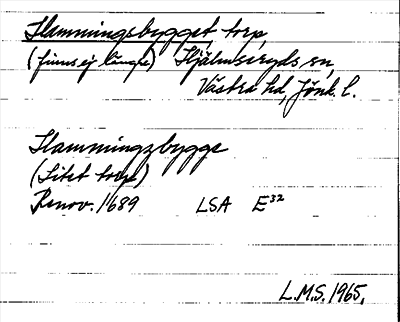 Flammingsbygget, torp,
(finns ej längre) Hjälmseryds sn,
Västra hd, Jönk. l.
Flammingzbygge
(Litet torp)
Renov. 1689 LSA E³²
L.M.S. 1965.